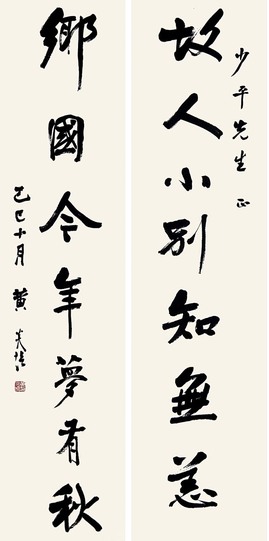 少平先生 正
故人小別知無恙
鄉國今年夢有秋
己巳十月 黃炎培